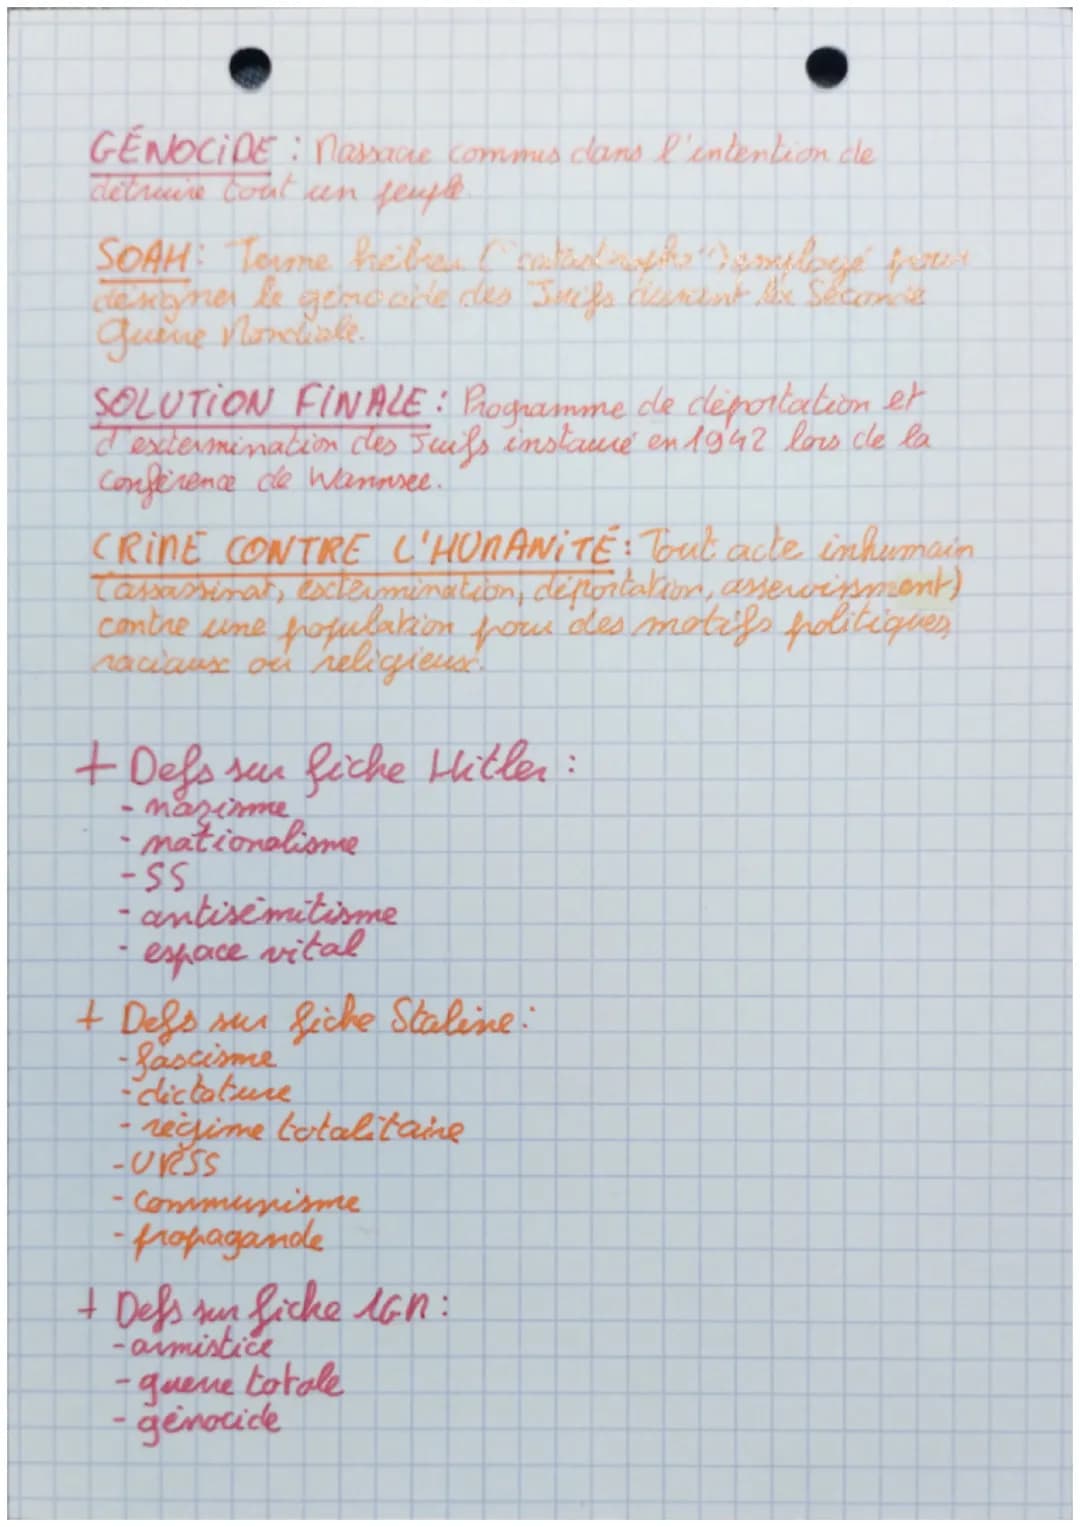 GÉNOCIDE : Massacre commis dans l'intention de
détruire tout un peuple.
SOAH : Terme hébreu ("catastrophe") employé pour
désigner le génocide des Juifs durant la Seconde
Guerre Mondiale.
SOLUTION FINALE : Programme de déportation et
d'extermination des Juifs instauré en 1942 lors de la
conférence de Wannsee.
CRIME CONTRE L'HUMANITÉ : Tout acte inhumain
(assassinat, extermination, déportation, asservissment)
contre une population pour des motifs politiques,
raciaux ou religieux.
+ Defs sur fiche Hitler :
- nazisme
- nationalisme
- SS
- antisémitisme
- espace vital
+ Defs sur fiche Staline :
- fascisme
- dictature
- régime totalitaire
- URSS
- communisme
- propagande
+ Defs sur fiche 1GM :
- armistice
- guerre totale
- génocide